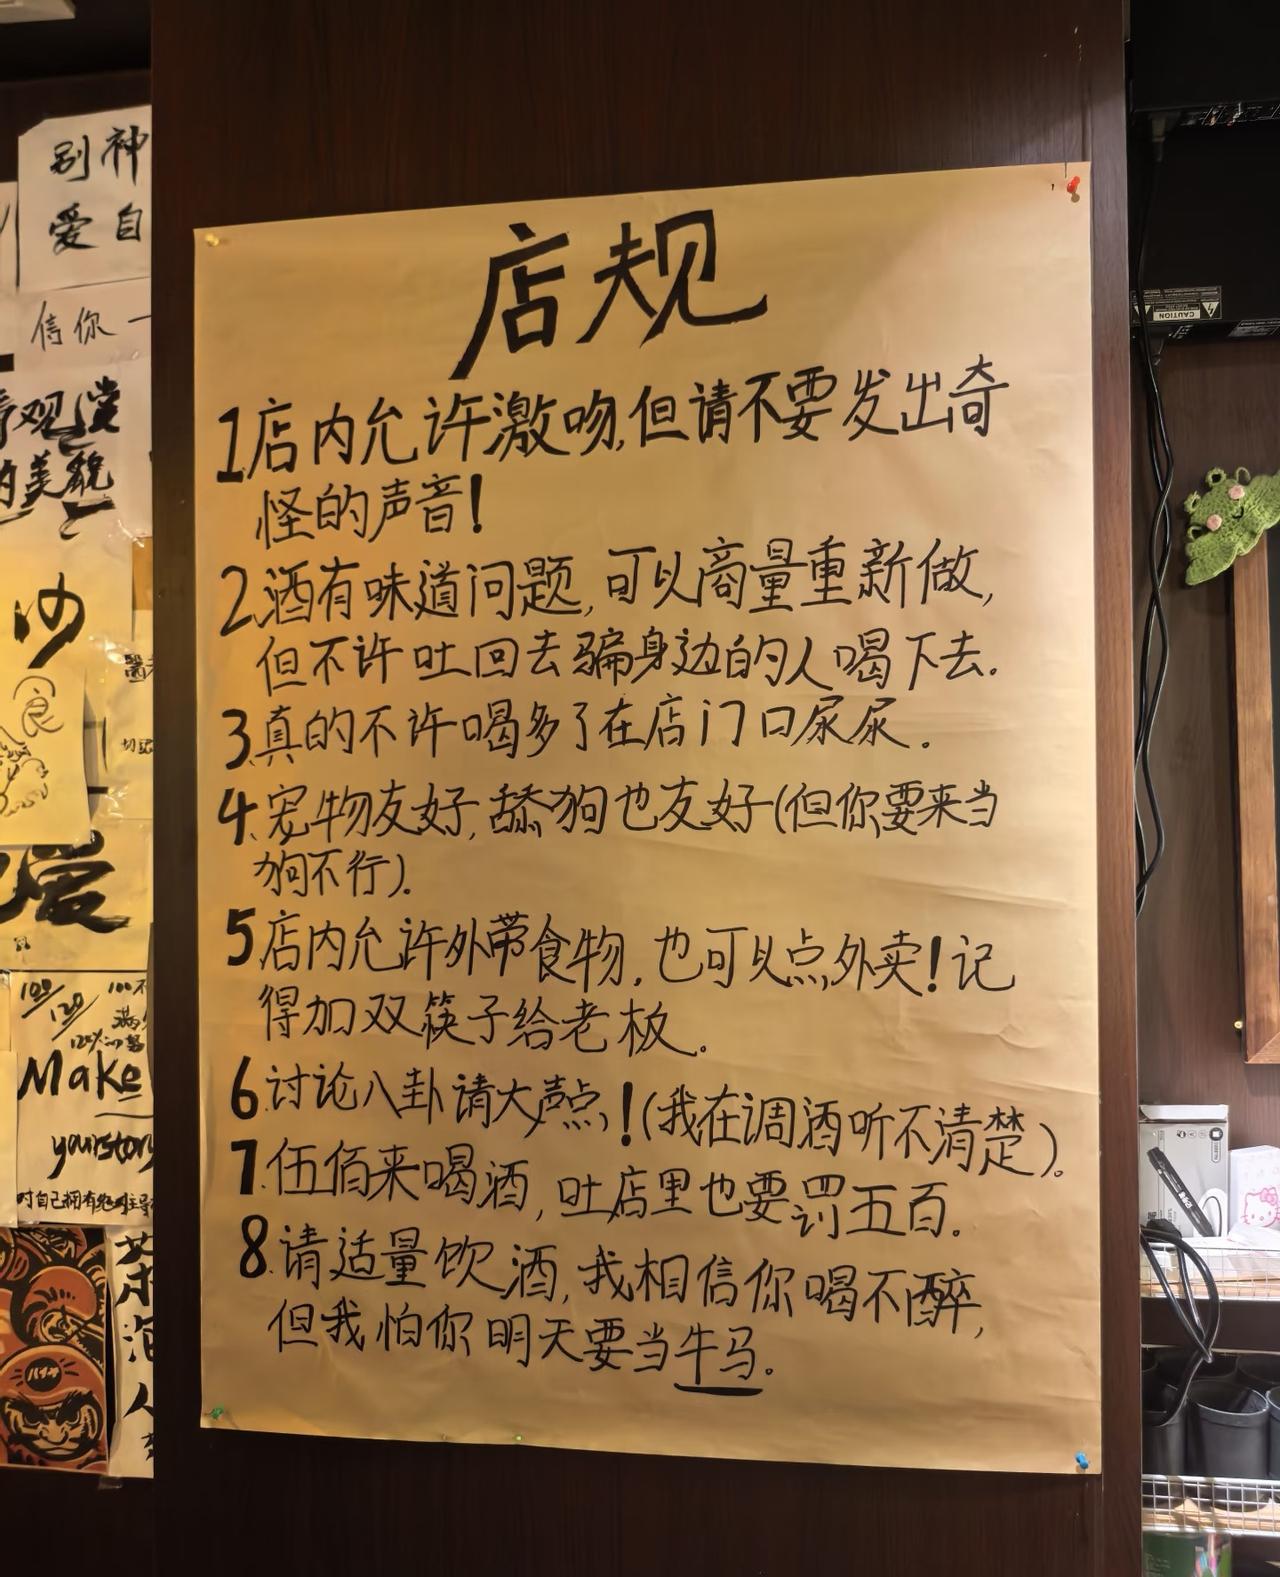 店规
1.店内允许激吻,但请不要发出奇
怪的声音!
2.酒有味道问题,可以商量重新做,
但不许吐回去骗身边的人喝下去.
3.真的不许喝多了在店门口尿尿.
4.宠物友好,舔狗也友好(但你要来当
狗不行).
5.店内允许外带食物,也可以点外卖!记
得加双筷子给老板.
6.讨论八卦请大声点!(我在调酒听不清楚).
7.伍佰来喝酒,吐店里也要罚五百.
8.请适量饮酒,我相信你喝不醉,
但我怕你明天要当牛马.
别神
爱自
信你一
观望
美貌
妙
食
爱
100/120
Make
yourstory
时自己拥有绝对主导
茶
泡
人
CAUTION